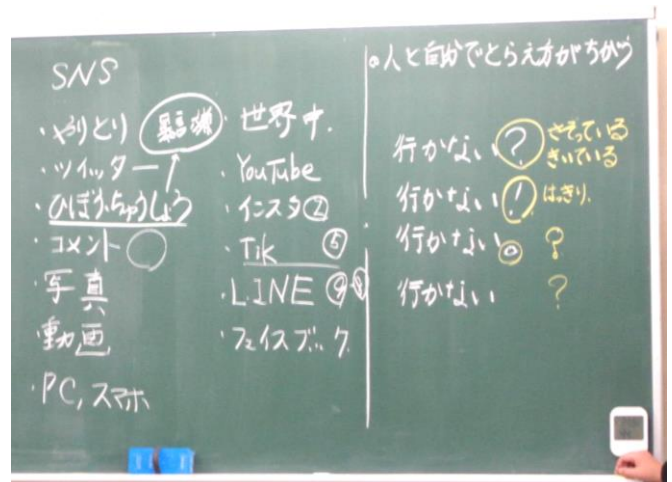 SNS
・やりとり
・ツイッター
・ひぼう、ちゅうしょう
・コメント
・写真
動画
・PC,スマホ
・世界中.
・YouTube
・インスタ②
・Tik ⑤
・LINE
・フェイスブック
。人と自分でとらえ方がちがう
行かない? さそっている
きいている
行かない! はっきり.
行かない。 ?
行かない ?